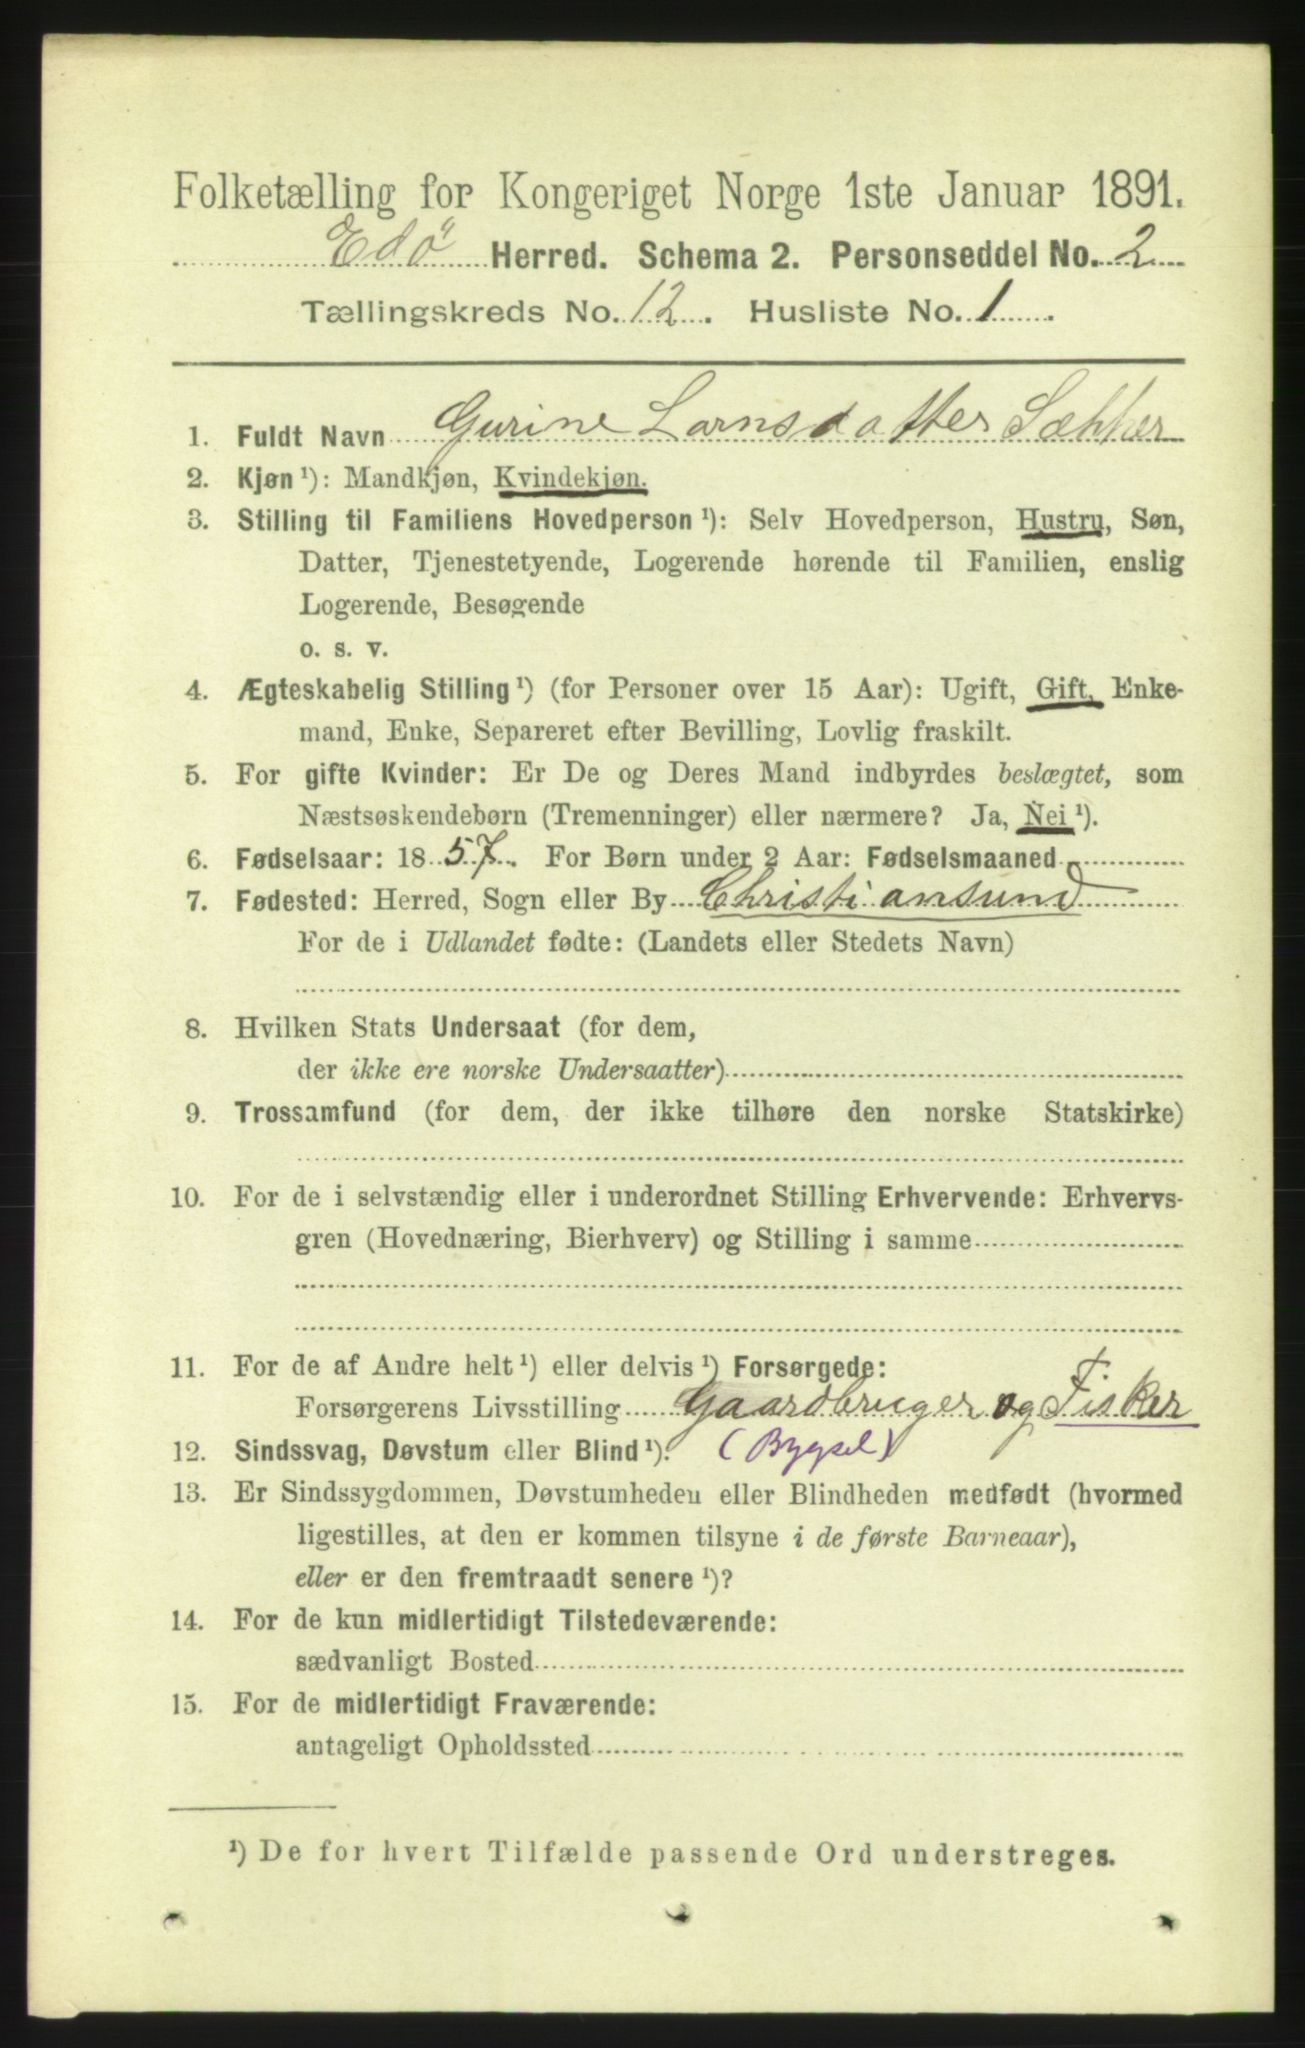 Folketælling for Kongeriget Norge 1ste Januar 1891.
Edö Herred. Schema 2. Personseddel No. 2
Tællingskreds No. 12. Husliste No. 1.
1. Fuldt Navn Gurine Larnsdatter Sæther
2. Kjøn ¹): Mandkjøn, Kvindekjøn.
3. Stilling til Familiens Hovedperson ¹): Selv Hovedperson, Hustru, Søn,
Datter, Tjenestetyende, Logerende hørende til Familien, enslig
Logerende, Besøgende
o. s. v.
4. Ægteskabelig Stilling ¹) (for Personer over 15 Aar): Ugift, Gift, Enke-
mand, Enke, Separeret efter Bevilling, Lovlig fraskilt.
5. For gifte Kvinder: Er De og Deres Mand indbyrdes beslægtet, som
Næstsøskendebørn (Tremenninger) eller nærmere? Ja, Nei ¹).
6. Fødselsaar: 1857. For Børn under 2 Aar: Fødselsmaaned
7. Fødested: Herred, Sogn eller By Christiansund
For de i Udlandet fødte: (Landets eller Stedets Navn)
8. Hvilken Stats Undersaat (for dem,
der ikke ere norske Undersaatter)
9. Trossamfund (for dem, der ikke tilhøre den norske Statskirke)
10. For de i selvstændig eller i underordnet Stilling Erhvervende: Erhvervs-
gren (Hovednæring, Bierhverv) og Stilling i samme
11. For de af Andre helt ¹) eller delvis ¹) Forsørgede:
Forsørgerens Livsstilling Gaardbruger og Fisker
12. Sindssvag, Døvstum eller Blind ¹). (Bygsel)
13. Er Sindssygdommen, Døvstumheden eller Blindheden medfødt (hvormed
ligestilles, at den er kommen tilsyne i de første Barneaar),
eller er den fremtraadt senere ¹)?
14. For de kun midlertidigt Tilstedeværende:
sædvanligt Bosted
15. For de midlertidigt Fraværende:
antageligt Opholdssted
¹) De for hvert Tilfælde passende Ord understreges.